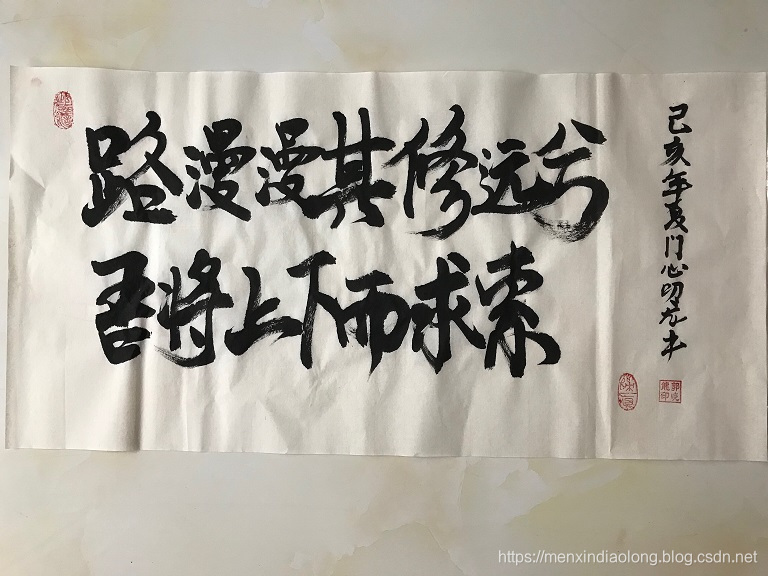 路漫漫其修远兮
吾将上下而求索
己亥年夏门心雕龙书
https://menxindiaolong.blog.csdn.net